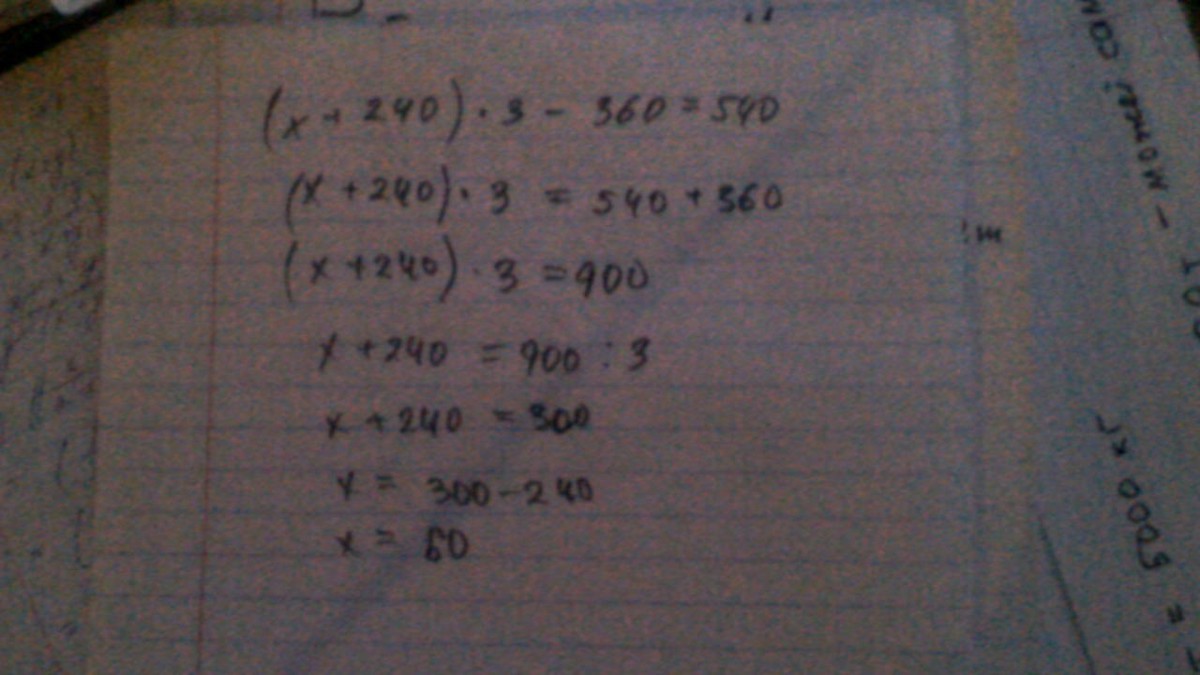 (x + 240) · 3 - 360 = 540
(x + 240) · 3 = 540 + 360
(x + 240) · 3 = 900
x + 240 = 900 : 3
x + 240 = 300
x = 300 - 240
x = 60
5000 кг =